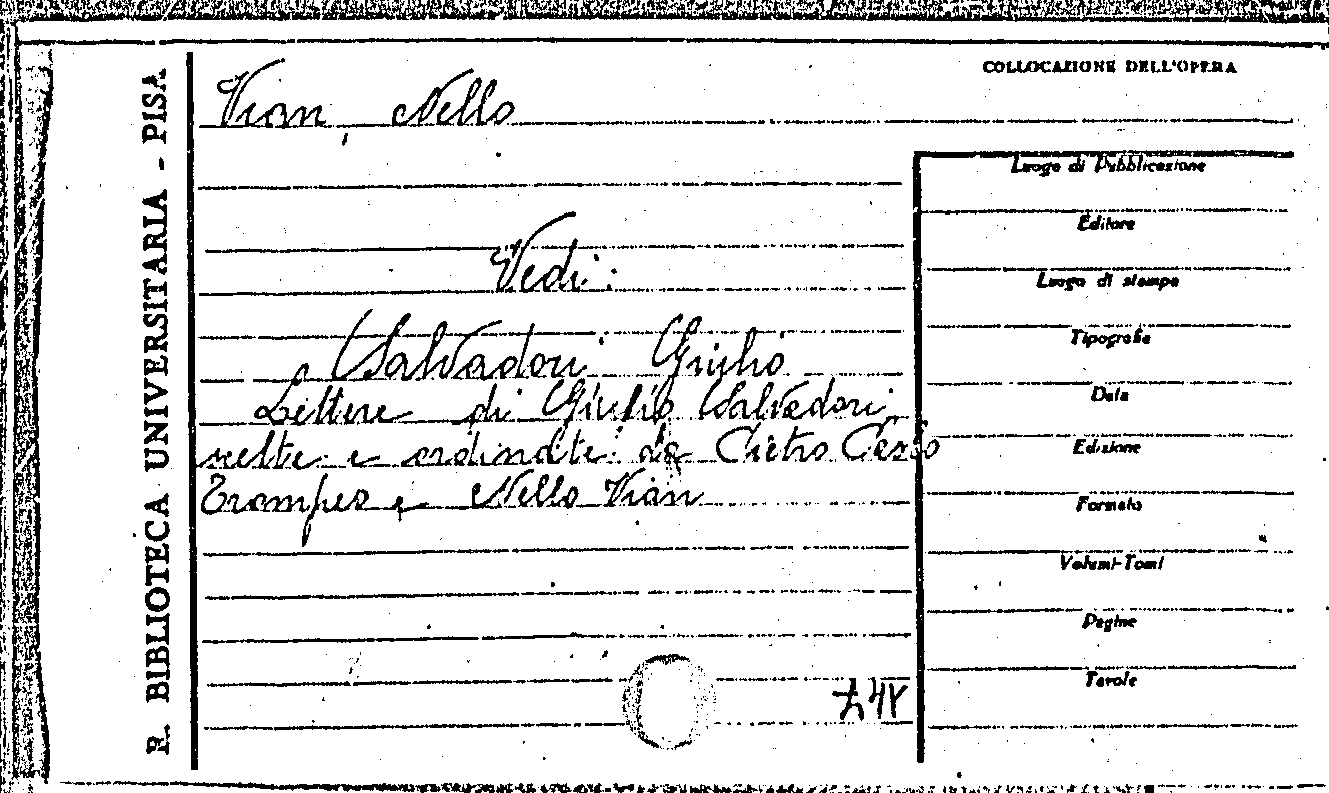 R. BIBLIOTECA UNIVERSITARIA - PISA
COLLOCAZIONE DELL'OPERA
Vian, Nello
Vedi:
Salvadori Giulio
Lettere di Giulio Salvadori
scelte e ordinate da Pietro Paolo
Trompeo e Nello Vian
Luogo di Pubblicazione
Editore
Luogo di stampa
Tipografia
Data
Edizione
Formato
Volumi-Tomi
Pagine
Tavole